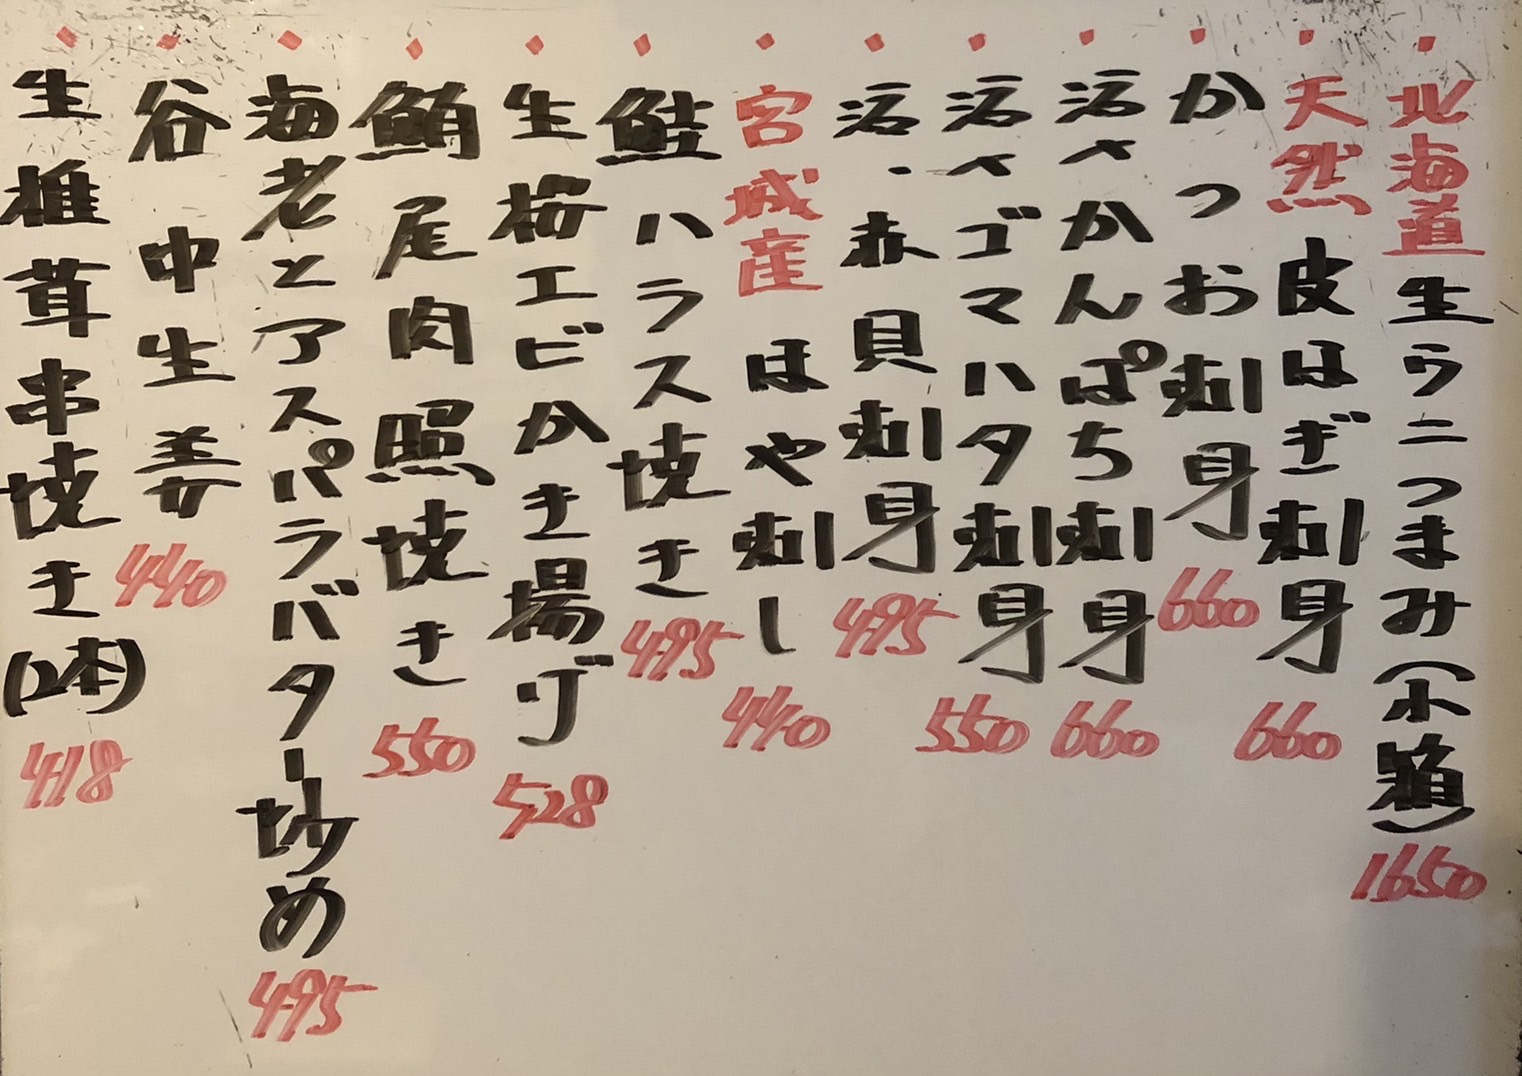 北海道生ウニつまみ(木箱) 1650
天然皮はぎ刺身 660
かつお刺身 660
活〆かんぱち刺身 660
活〆ゴマハタ刺身 550
活・赤貝刺身 495
宮城産ほや刺し 440
鮭ハラス焼き 495
生桜エビかき揚げ 528
鮪尾肉照焼き 550
海老とアスパラバター炒め 495
谷中生姜 440
生椎茸串焼き(2本) 418